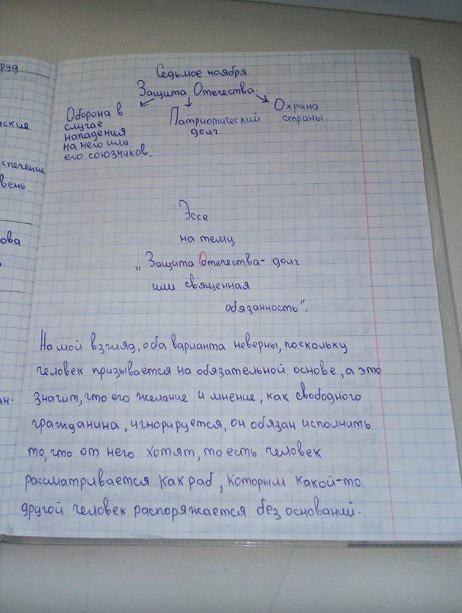 руд
Седьмое ноября.
Защита Отечества.
Оборона в
случае
нападения
на него или
его союзников.
Патриотический
долг.
Охрана
страны.
ские
спечение
вень
ова
ан-
Эссе
на тему
„Защита Отечества- долг
или священная
обязанность".
На мой взгляд, оба варианта неверны, поскольку
человек призывается на обязательной основе, а это
значит, что его желание и мнение, как свободного
гражданина, игнорируется, он обязан исполнить
то, что от него хотят, то есть человек
рассматривается как раб, которым какой-то
другой человек распоряжается без оснований.